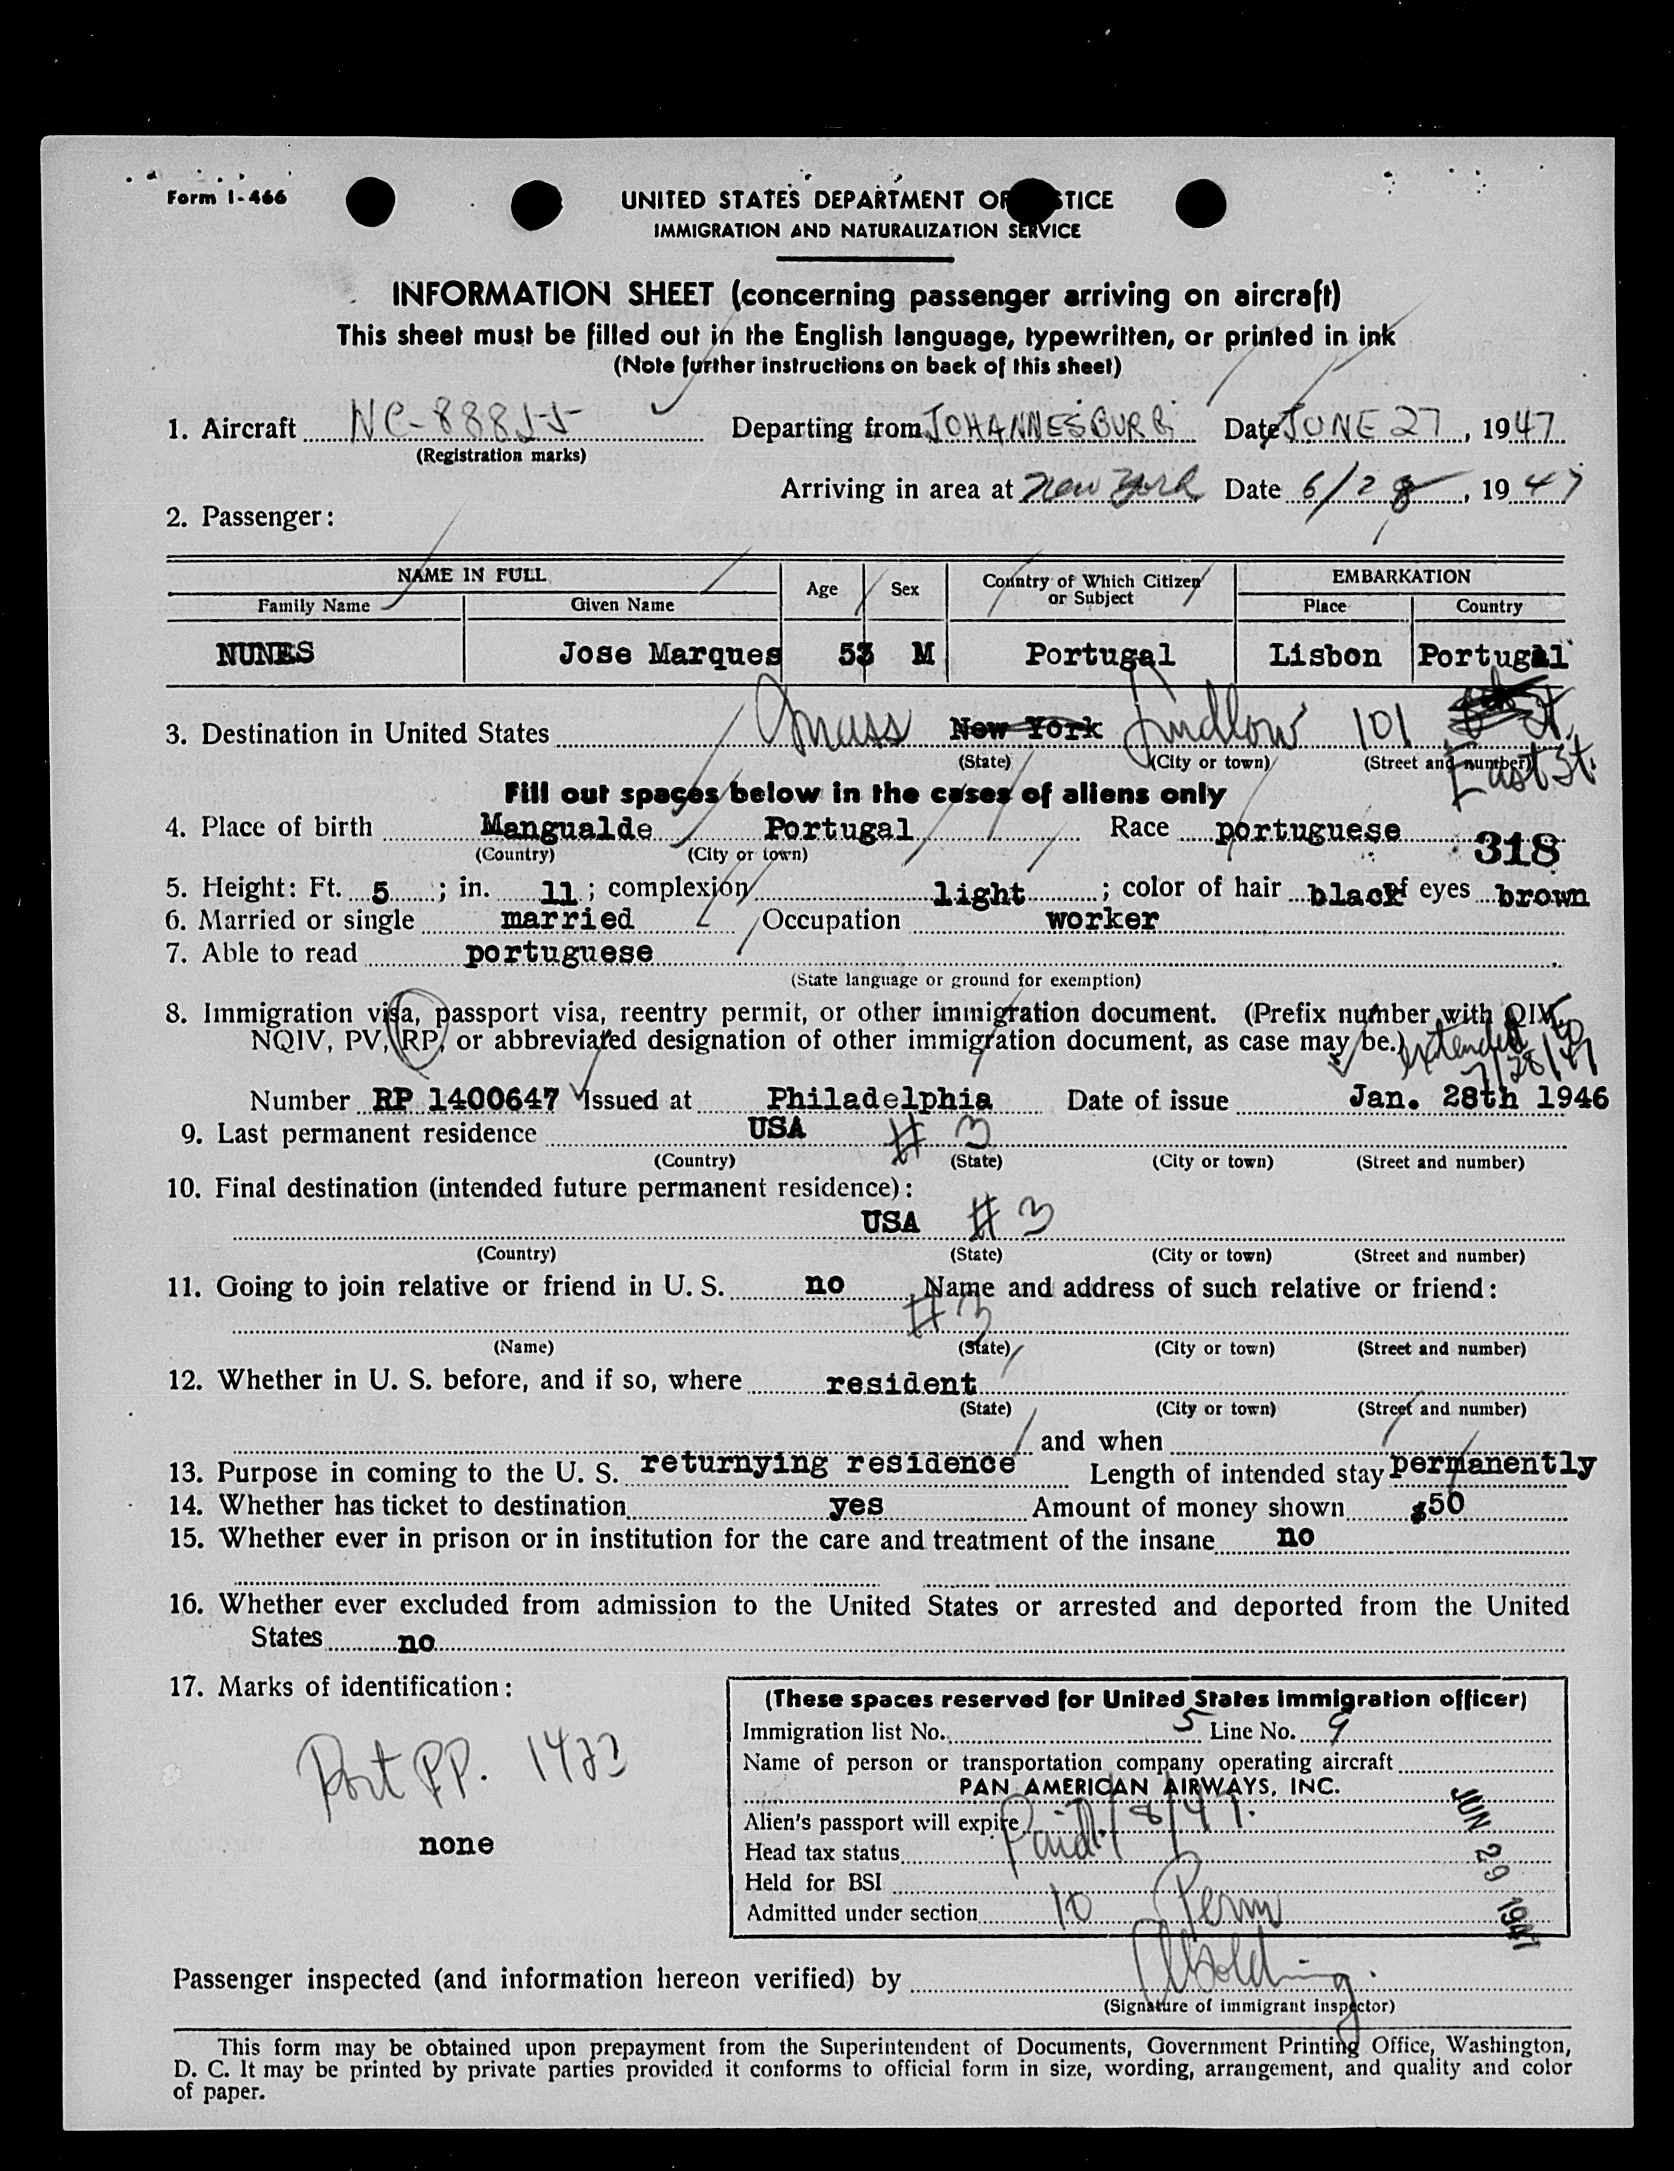 Form I-466
UNITED STATES DEPARTMENT OF STICE
IMMIGRATION AND NATURALIZATION SERVICE
INFORMATION SHEET (concerning passenger arriving on aircraft)
This sheet must be filled out in the English language, typewritten, or printed in ink
(Note further instructions on back of this sheet)
1. Aircraft NC-88855 Departing from JOHANNESBURG Date JUNE 27, 1947
(Registration marks)
Arriving in area at New York Date 6/28, 1947
2. Passenger:
NAME IN FULL Age Sex Country of Which Citizen or Subject EMBARKATION
Family Name Given Name Place Country
NUNES Jose Marques 53 M Portugal Lisbon Portugal
3. Destination in United States Mass New York Ludlow 101 St.
(State) (City or town) (Street and number) East St.
Fill out spaces below in the cases of aliens only
4. Place of birth Mangualde Portugal Race portuguese
(Country) (City or town) 318
5. Height: Ft. 5; in. 11; complexion light; color of hair black eyes brown
6. Married or single married Occupation worker
7. Able to read portuguese
(State language or ground for exemption)
8. Immigration visa, passport visa, reentry permit, or other immigration document. (Prefix number with QIV,
NQIV, PV, RP, or abbreviated designation of other immigration document, as case may be.) extended to
7/28/47
Number RP 1400647 Issued at Philadelphia Date of issue Jan. 28th 1946
9. Last permanent residence USA # 3
(Country) (State) (City or town) (Street and number)
10. Final destination (intended future permanent residence):
USA # 3
(Country) (State) (City or town) (Street and number)
11. Going to join relative or friend in U. S. no Name and address of such relative or friend:
# 3
(Name) (State) (City or town) (Street and number)
12. Whether in U. S. before, and if so, where resident
(State) (City or town) (Street and number)
and when
13. Purpose in coming to the U. S. returnying residence Length of intended stay permanently
14. Whether has ticket to destination yes Amount of money shown $50
15. Whether ever in prison or in institution for the care and treatment of the insane no
16. Whether ever excluded from admission to the United States or arrested and deported from the United
States no
17. Marks of identification:
(These spaces reserved for United States immigration officer)
Immigration list No. 5 Line No. 9
Name of person or transportation company operating aircraft
PAN AMERICAN AIRWAYS, INC.
Port PP. 1423
none
Alien's passport will expire 1/8/47.
Head tax status Paid
Held for BSI
Admitted under section 10 Perm
JUN 29 1947
Passenger inspected (and information hereon verified) by
(Signature of immigrant inspector)
This form may be obtained upon prepayment from the Superintendent of Documents, Government Printing Office, Washington,
D. C. It may be printed by private parties provided it conforms to official form in size, wording, arrangement, and quality and color
of paper.